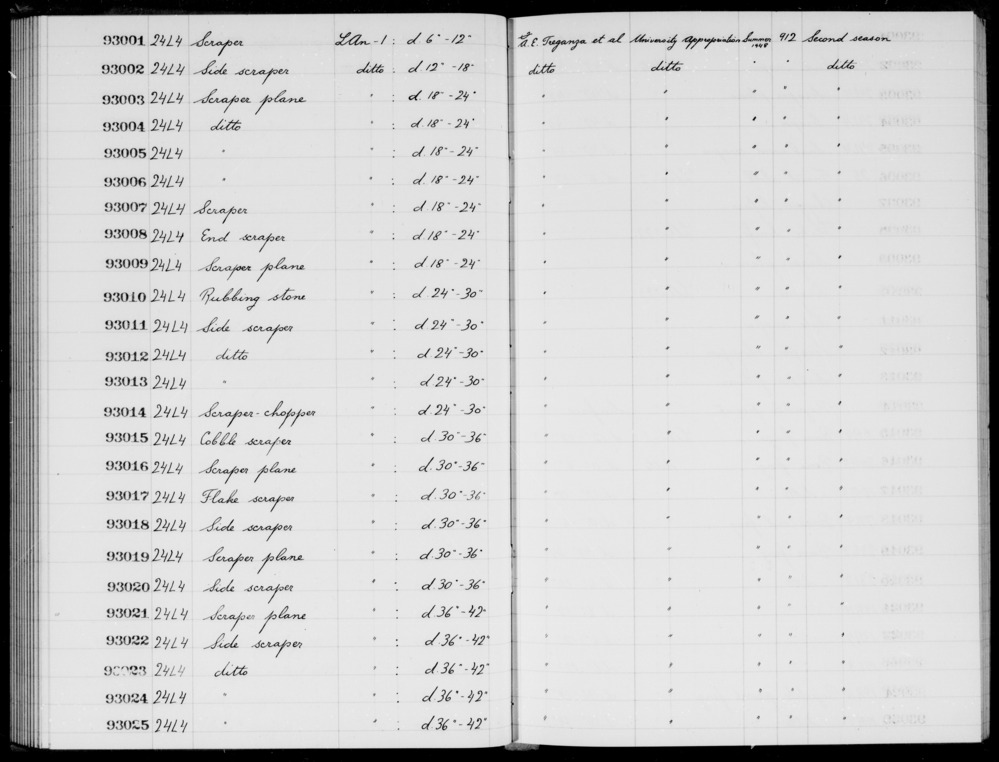 93001 24L4 Scraper LAn-1 : d. 6" - 12" A. E. Treganza et al University Appropriation Summer 1948 912 Second season
93002 24L4 Side scraper ditto : d. 12" - 18" ditto ditto " " ditto
93003 24L4 Scraper plane " : d. 18" - 24" " " " " "
93004 24L4 ditto " : d. 18" - 24" " " " " "
93005 24L4 " " : d. 18" - 24" " " " " "
93006 24L4 " " : d. 18" - 24" " " " " "
93007 24L4 Scraper " : d. 18" - 24" " " " " "
93008 24L4 End scraper " : d. 18" - 24" " " " " "
93009 24L4 Scraper plane " : d. 18" - 24" " " " " "
93010 24L4 Rubbing stone " : d. 24" - 30" " " " " "
93011 24L4 Side scraper " : d. 24" - 30" " " " " "
93012 24L4 ditto " : d. 24" - 30" " " " " "
93013 24L4 " " : d. 24" - 30" " " " " "
93014 24L4 Scraper-chopper " : d. 24" - 30" " " " " "
93015 24L4 Cobble scraper " : d. 30" - 36" " " " " "
93016 24L4 Scraper plane " : d. 30" - 36" " " " " "
93017 24L4 Flake scraper " : d. 30" - 36" " " " " "
93018 24L4 Side scraper " : d. 30" - 36" " " " " "
93019 24L4 Scraper plane " : d. 30" - 36" " " " " "
93020 24L4 Side scraper " : d. 30" - 36" " " " " "
93021 24L4 Scraper plane " : d. 36" - 42" " " " " "
93022 24L4 Side scraper " : d. 36" - 42" " " " " "
93023 24L4 ditto " : d. 36" - 42" " " " " "
93024 24L4 " " : d. 36" - 42" " " " " "
93025 24L4 " " : d. 36" - 42" " " " " "